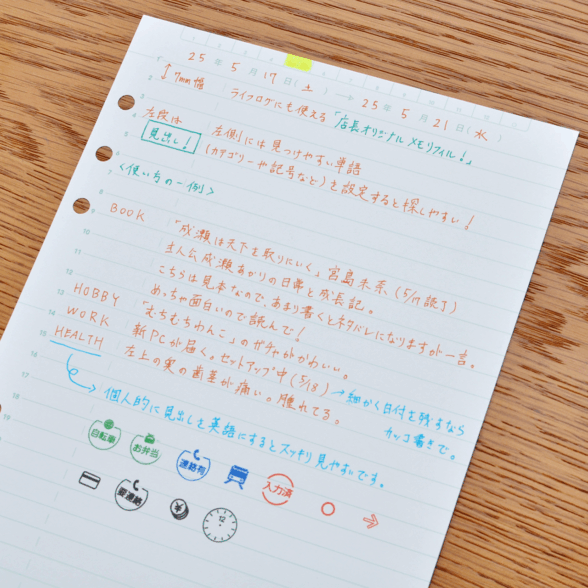 25年5月17日(土)→25年5月21日(水)
7mm幅 ライフログにも使える「店長オリジナルメモリフィル!」
左段は
見出し! 左側には見つけやすい単語
(カテゴリーや記号など)を設定すると探しやすい!
<使い方の一例>
BOOK 「成瀬は天下を取りにいく」宮島未奈(5/17読了)
主人公成瀬あかりの日常と成長記。
こちらは見本なので、あまり書くとネタバレになりますが一言。
めっちゃ面白いので読んで!
HOBBY 「むちむちわんこ」のガチャがかわいい。
WORK 新PCが届く。セットアップ中(5/18)→細かく日付を残すなら
カッコ書きで。
HEALTH 左上の奥の歯茎が痛い。腫れてる。
個人的に見出しを英語にするとスッキリ見やすいです。
自転車 お弁当 連絡有 入力済
要連絡 12